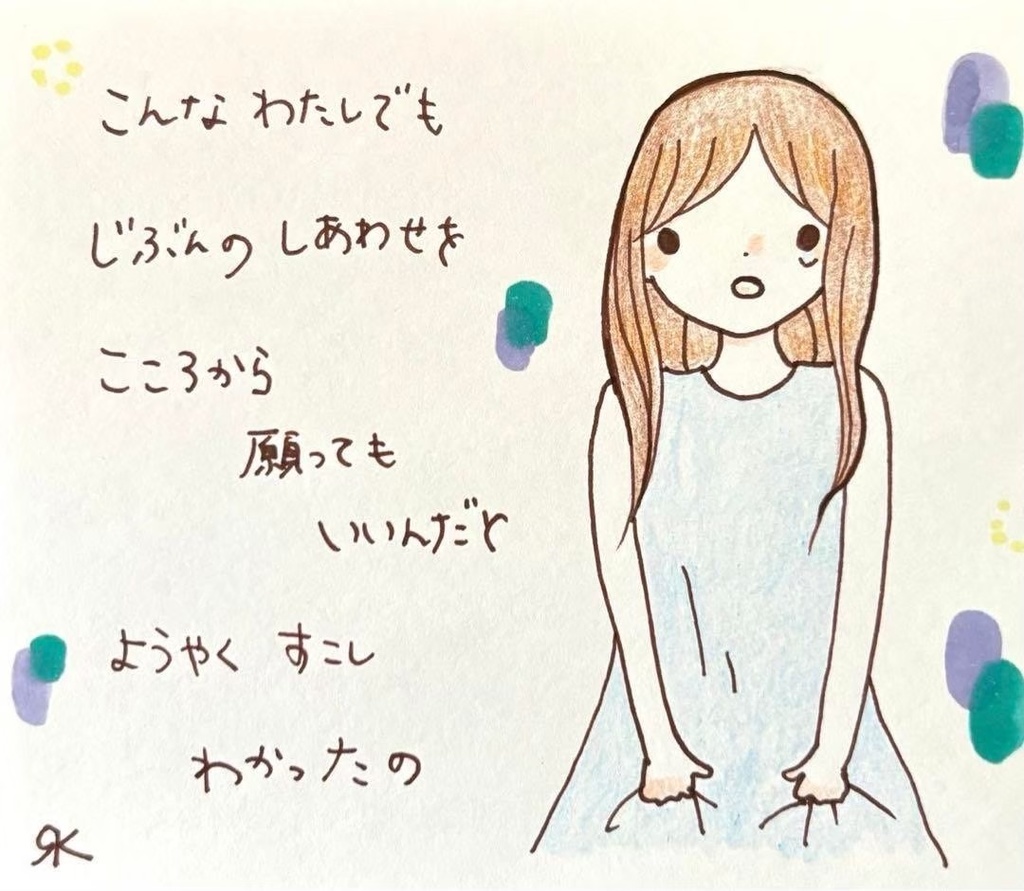 こんな わたしでも
じぶんの しあわせを
こころから
願っても
いいんだと
ようやく すこし
わかったの